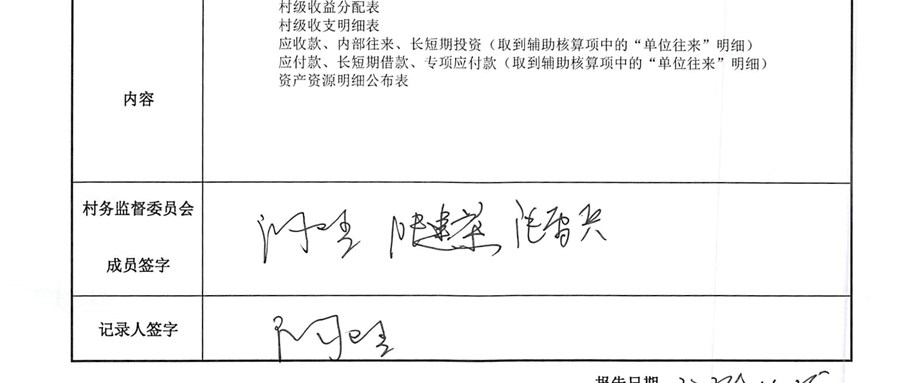 村级收益分配表
村级收支明细表
应收款、内部往来、长短期投资（取到辅助核算项中的“单位往来”明细）
应付款、长短期借款、专项应付款（取到辅助核算项中的“单位往来”明细）
资产资源明细公布表
内容
村务监督委员会
成员签字
记录人签字
报告日期